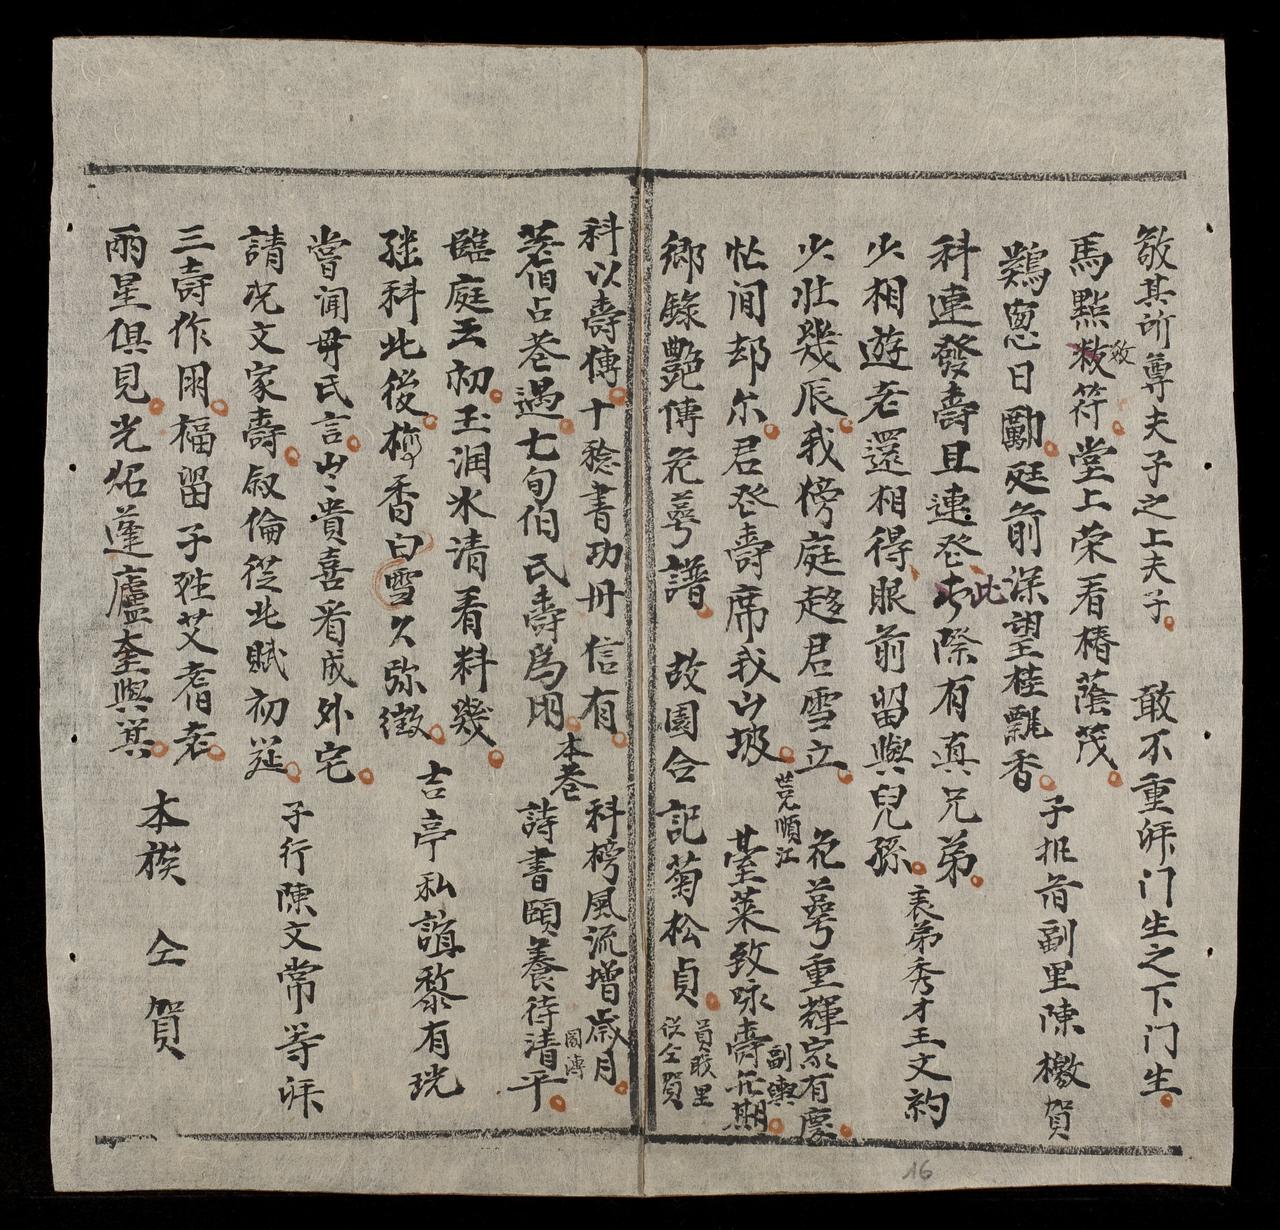 敬其所尊夫子之上夫子 敢不重拜门生之下门生
馬點敕符堂上荣看椿蔭茂
敕
鷄窓日勵庭前深望桂飄香 子批耆副里陳檄賀
科連發壽且連登 際有真兄弟
此
少相遊老還相得眼前留與兒孫 表弟秀才王文約
少壮幾辰我榜庭趍君雪立 花萼重輝家有慶
忙间却尔君登壽席我山坡 臺莱致咏壽花期
莞順江
副輿
鄉錄艷傳花萼譜 故園合記菊松貞
員職里
從仝賀
科以壽傳十稔書功卅信有 科榜風流增歲月
耆伯占巷過七旬伯氏壽爲用 詩書頤養待清平
本巷
閣溥
臨庭云初玉润氷清看科幾
继科此後梅香白雪久弥徵 吉亭私誼黎有珖
嘗闻毋氏言必貴喜看成外宅
請况文家壽叙倫從此賦初筵 子行陳文常等拜
三壽作用福留子姓艾耆老
兩星俱見光炤蓬廬奎與箕 本族 仝賀
16